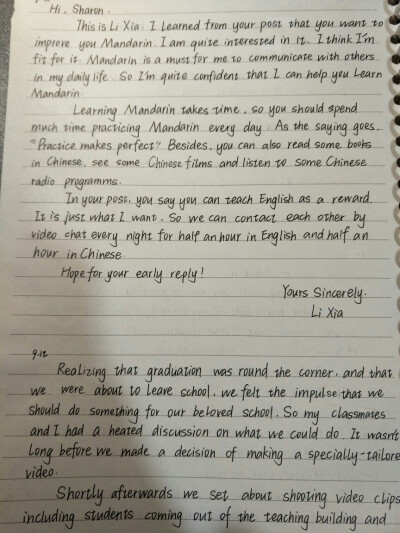 Hi, Sharon.
This is Li Xia. I learned from your post that you want to
improve you Mandarin. I am quite interested in it. I think I'm
fit for it. Mandarin is a must for me to communicate with others
in my daily life. So I'm quite confident that I can help you learn
Mandarin.
Learning Mandarin takes time, so you should spend
much time practicing Mandarin every day. As the saying goes,
"Practice makes perfect." Besides, you can also read some books
in Chinese, see some Chinese films and listen to some Chinese
radio programms.
In your post, you say you can teach English as a reward.
It is just what I want. So we can contact each other by
video chat every night for half an hour in English and half an
hour in Chinese.
Hope for your early reply!
Yours Sincerely,
Li Xia
9.12
Realizing that graduation was round the corner, and that
we were about to leave school, we felt the impulse that we
should do something for our beloved school. So my classmates
and I had a heated discussion on what we could do. It wasn't
long before we made a decision of making a specially-tailore
video.
Shortly afterwards we set about shooting video clips
including students coming out of the teaching building and